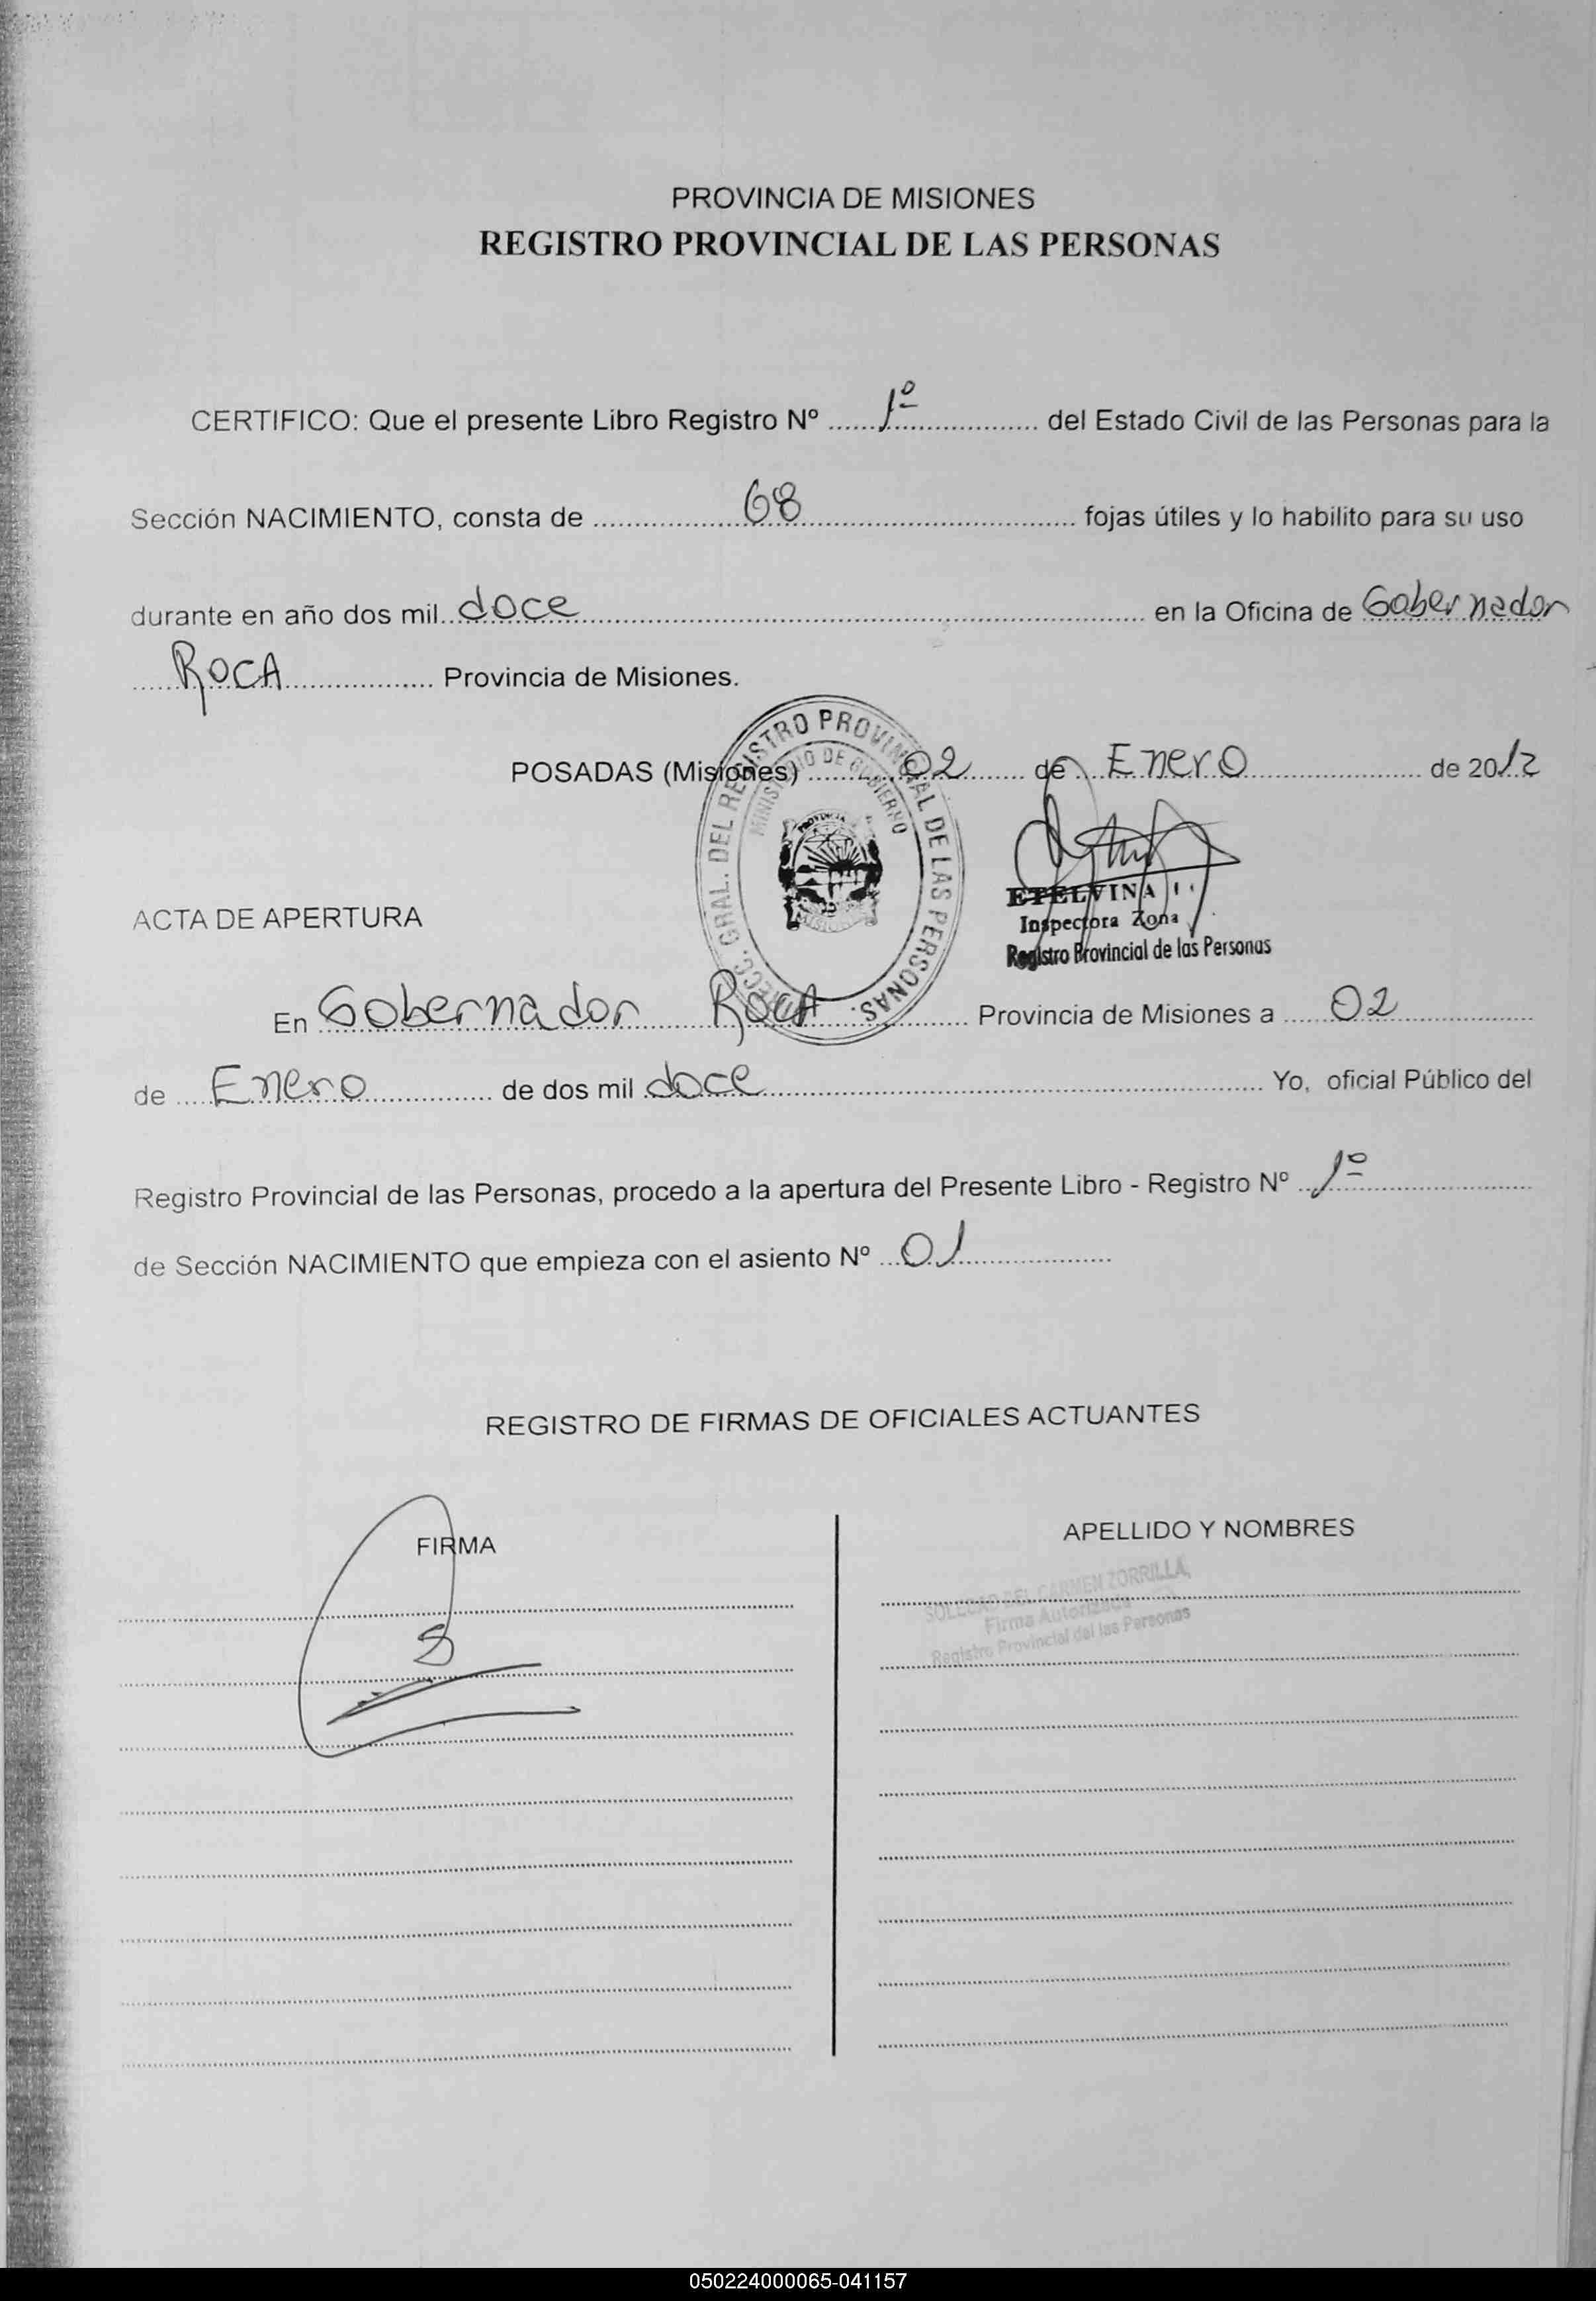 PROVINCIA DE MISIONES
REGISTRO PROVINCIAL DE LAS PERSONAS
CERTIFICO: Que el presente Libro Registro Nº 1º del Estado Civil de las Personas para la
Sección NACIMIENTO, consta de 68 fojas útiles y lo habilito para su uso
durante en año dos mil doce en la Oficina de Gobernador
ROCA Provincia de Misiones.
POSADAS (Misiones) 02 de Enero de 2012
DIRECC. GRAL. DEL REGISTRO PROVINCIAL DE LAS PERSONAS.
MINISTERIO DE GOBIERNO
PROVINCIA
MISIONES
ETELVINA
Inspectora Zona
Registro Provincial de las Personas
ACTA DE APERTURA
En Gobernador Roca Provincia de Misiones a 02
de Enero de dos mil doce Yo, oficial Público del
Registro Provincial de las Personas, procedo a la apertura del Presente Libro - Registro Nº 1º
de Sección NACIMIENTO que empieza con el asiento Nº 01
REGISTRO DE FIRMAS DE OFICIALES ACTUANTES
FIRMA
APELLIDO Y NOMBRES
SOLEDAD DEL CARMEN ZORRILLA
Firma Autorizada
Registro Provincial del las Personas
050224000065-041157